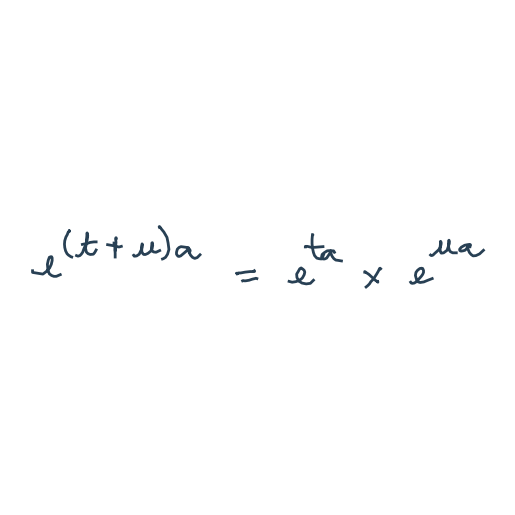 e^{(t+u)a} = e^{ta} × e^{ua}